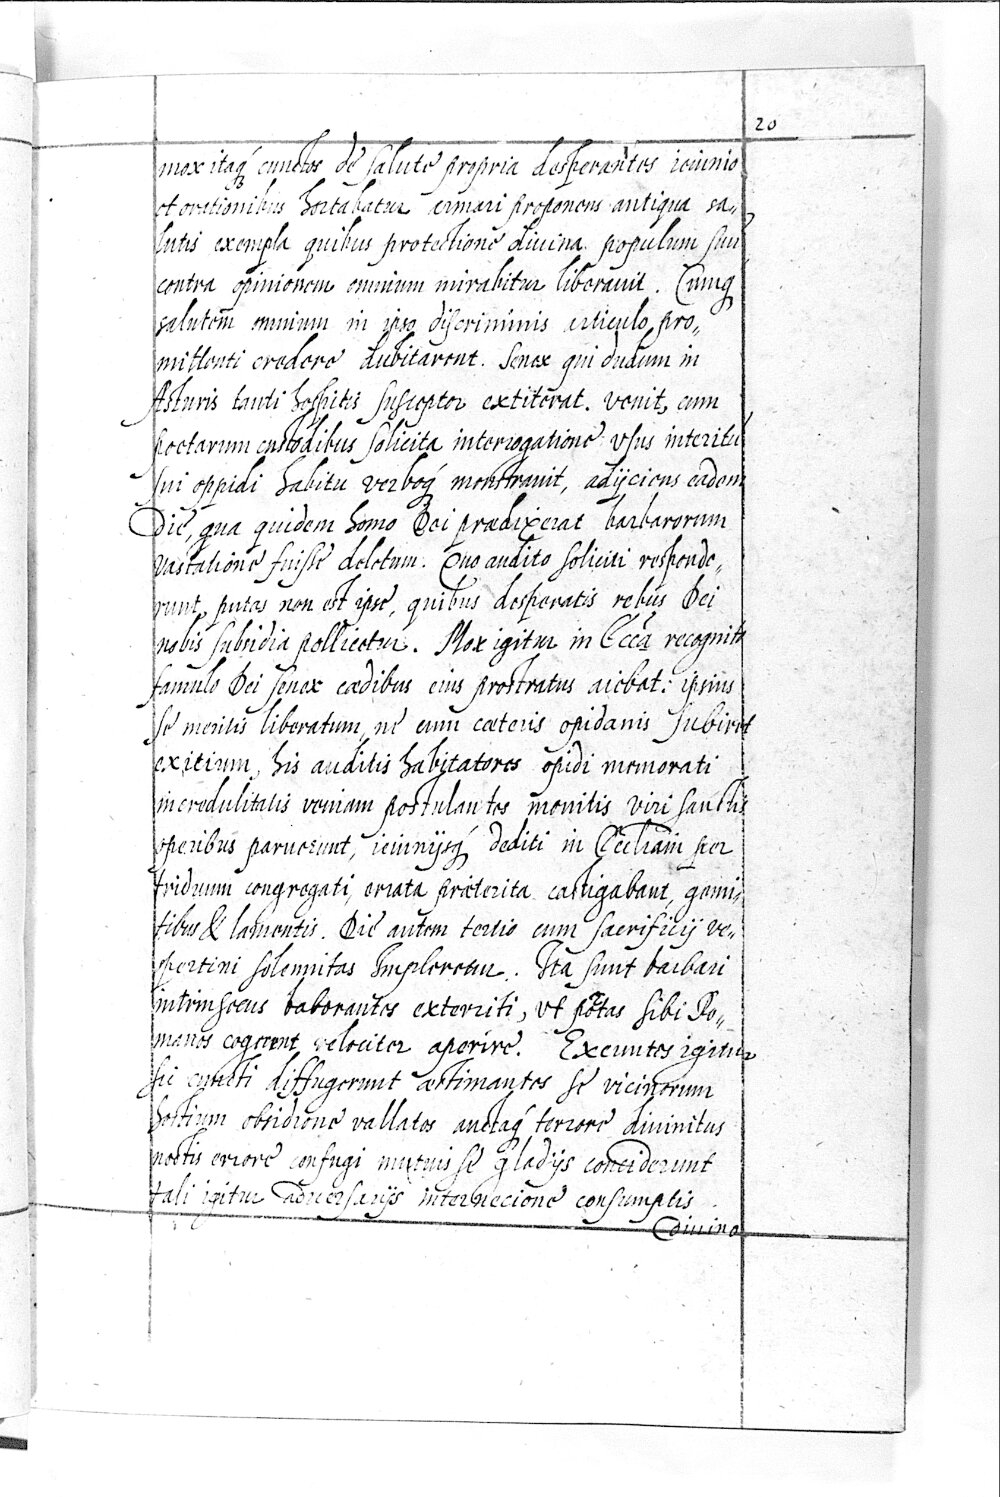 20
mox itaq́ cunctos de salute propria desperantes ieiunio
et orationibus hortabatur armari proponens antiqua sa„
lutis exempla quibus protectione diuina populum suũ
contra opinionem omnium mirabiliter liberauit. Cumq́
salutem omnium in ipso discriminis articulo pro„
mittenti credere dubitarent. Senex qui dudum in
Asturis tanti hospitis susceptor extiterat. venit, cum
portarum custodibus solicita interrogatione vsus interitũ
sui oppidi habitu verboq́ monstrauit, adijciens eadem
Die, qua quidem homo Dei prædixerat barbarorum
vastatione fuisse deletum. Quo audito soliciti responde„
runt, putas non est ipse, quibus desperatis rebus Dei
nobis subsidia pollicetur. Mox igitur in Ecclã recognito
famulo Dei senex cædibus eius prostratus aiebat: ipsius
se meritis liberatum, ne cum cæteris opidanis subiret
exitium, his auditis habitatores opidi memorati
incredulitatis veniam postulantes monitis viri sanctis
operibus paruerunt, ieiunijsq́ dediti in Eccliam per
triduum congregati, errata præterita castigabant, gemi„
tibus & lamentis. Die autem tertio cum sacrificij ve„
spertini solennitas Impleretur. Ita sunt barbari
intrinsecus laborantes exterriti, vt portas sibi Ro„
manos cogerent velociter aperire. Exeuntes igitur
sic cuncti diffugerunt æstimantes se vicinorum
hostium obsidione vallatos auctaq́ terrore diuinitus
noctis errore confugi mutuis se gladijs conciderunt
tali igitur aduersarijs internecione consumptis
diuino